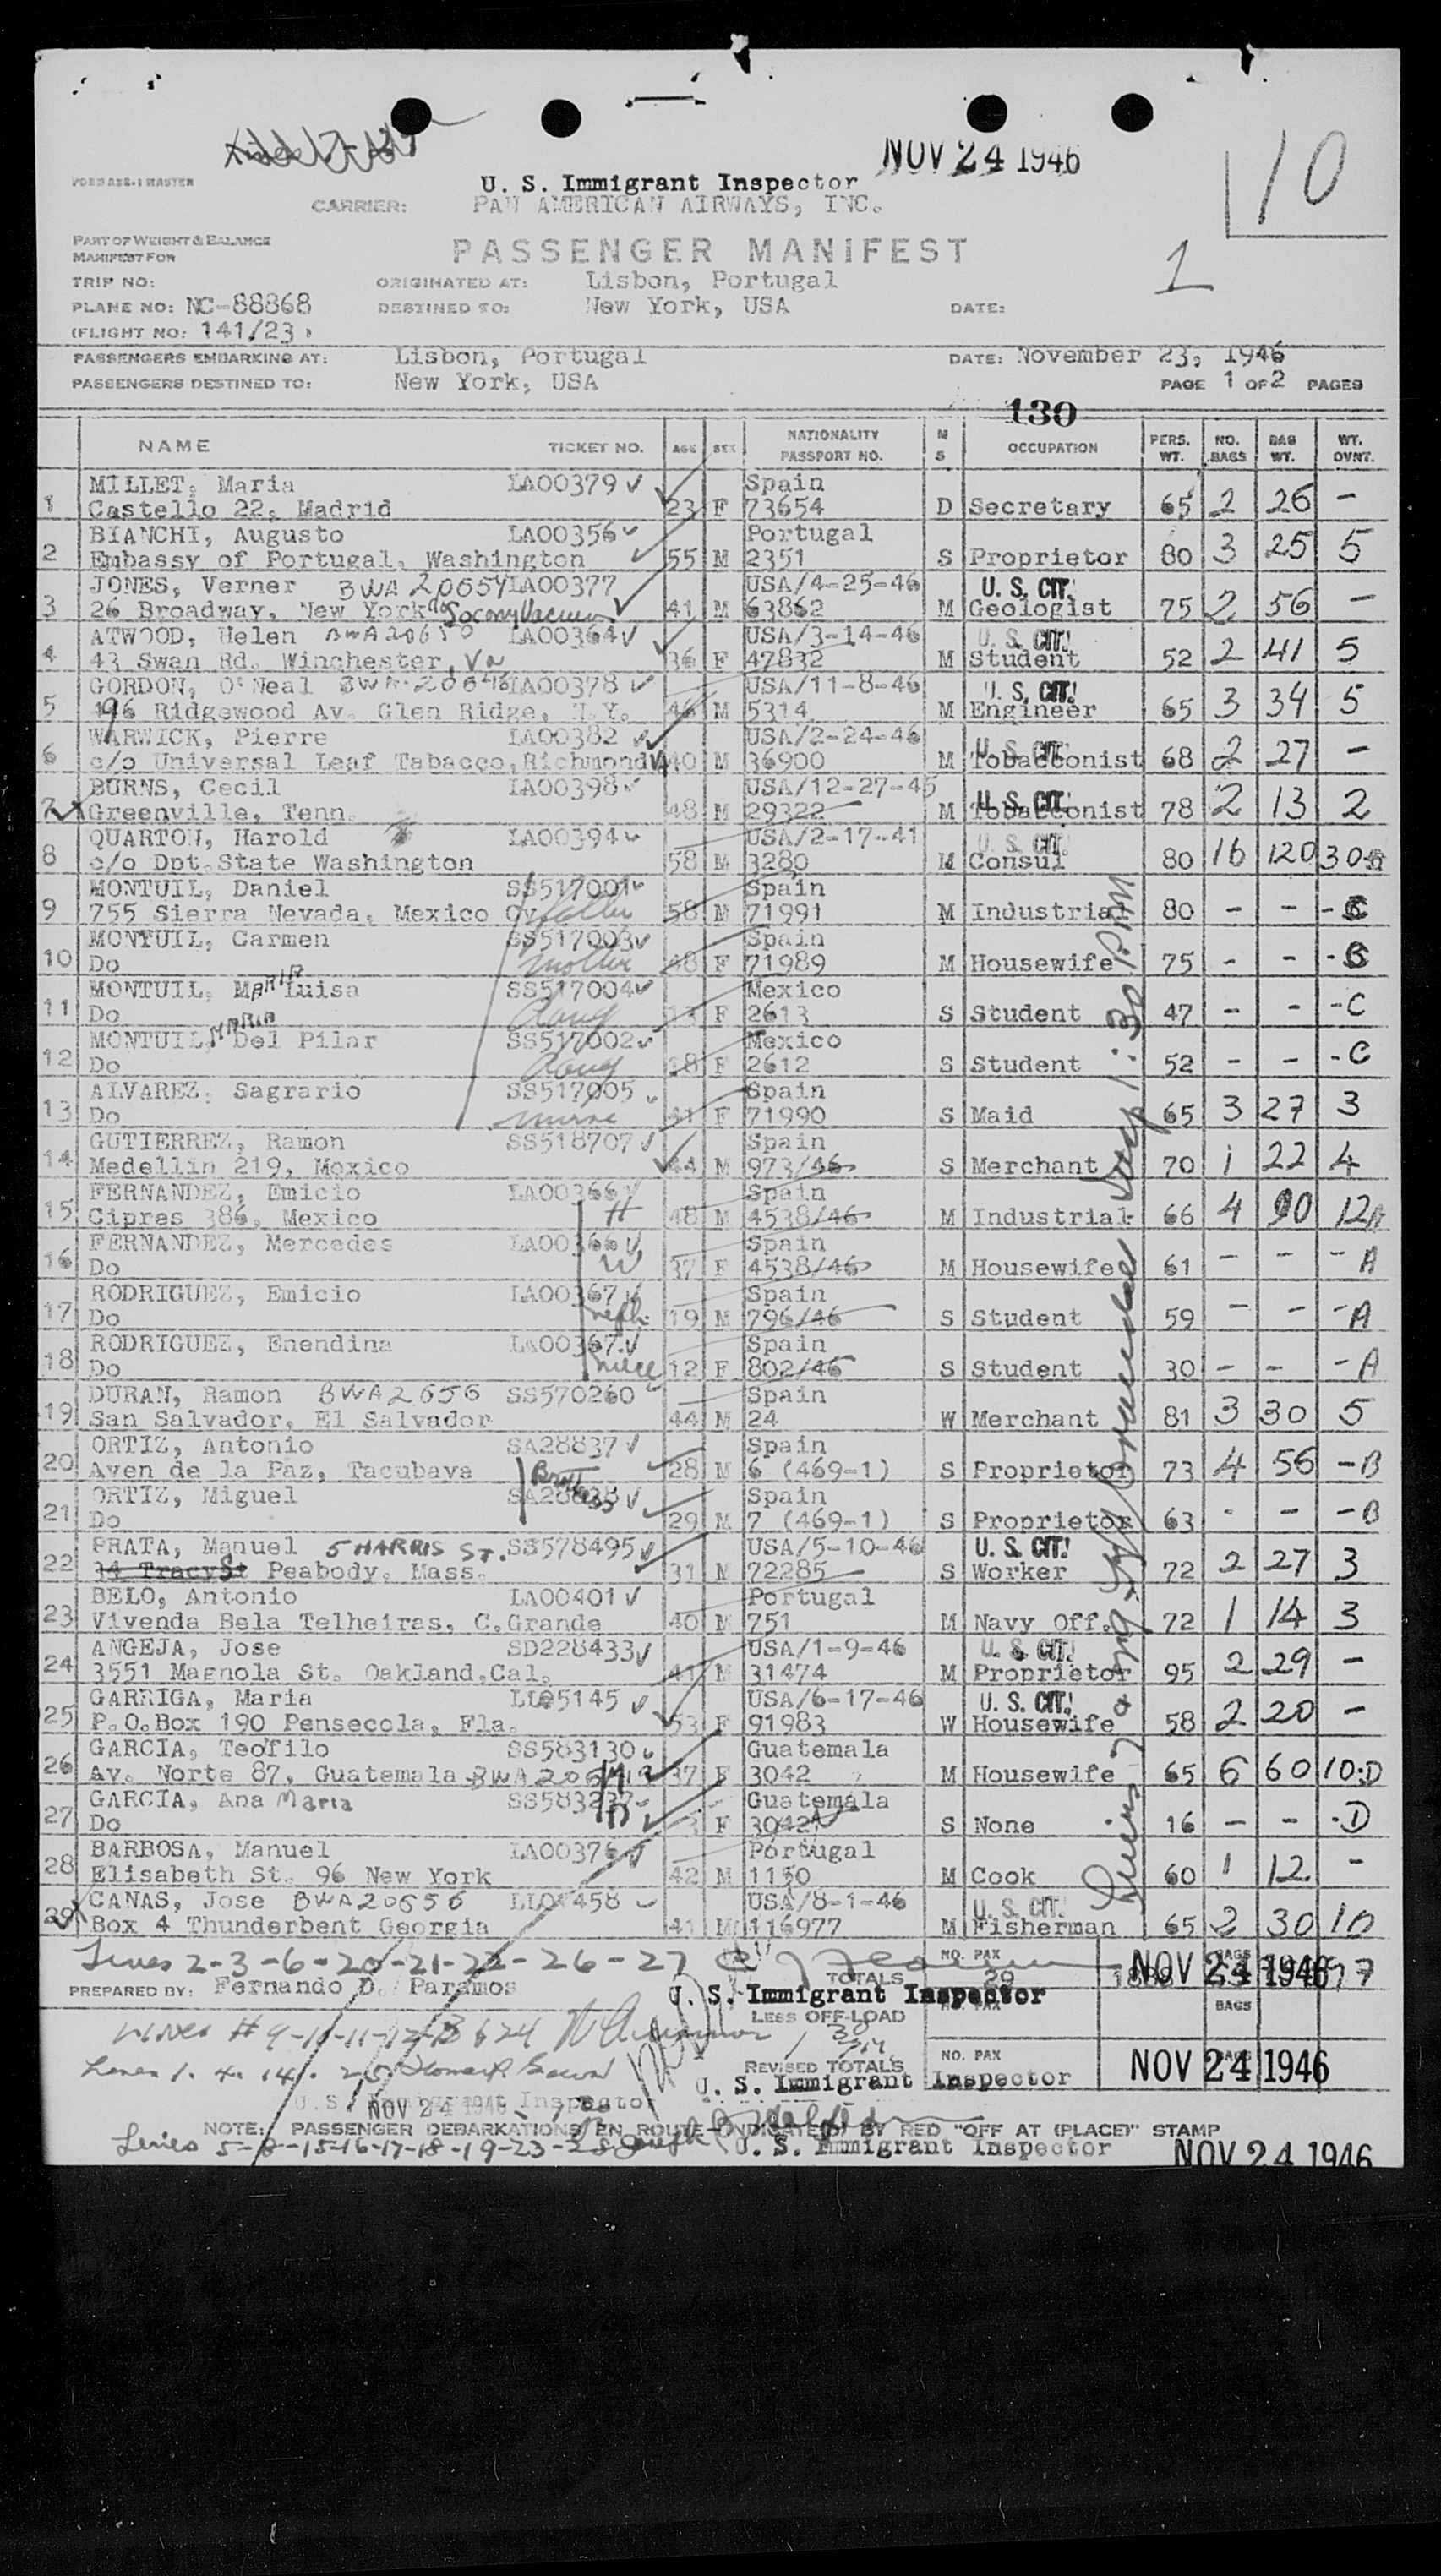 NOV 24 1946
10
FORM ABE-1 MASTER
U. S. Immigrant Inspector
CARRIER: PAN AMERICAN AIRWAYS, INC.
PART OF WEIGHT & BALANCE
MANIFEST FOR
PASSENGER MANIFEST
1
TRIP NO: ORIGINATED AT: Lisbon, Portugal
PLANE NO: NC-88868 DESTINED TO: New York, USA DATE:
(FLIGHT NO: 141/23)
PASSENGERS EMBARKING AT: Lisbon, Portugal DATE: November 23, 1946
PASSENGERS DESTINED TO: New York, USA PAGE 1 OF 2 PAGES
130
NAME TICKET NO. AGE SEX NATIONALITY PASSPORT NO. M S OCCUPATION PERS. WT. NO. BAGS BAG WT. WT. OVNT.
MILLET, Maria LA00379 Spain
1 Castello 22, Madrid 23 F 73654 D Secretary 65 2 26 -
BIANCHI, Augusto LA00356 Portugal
2 Embassy of Portugal, Washington 55 M 2351 S Proprietor 80 3 25 5
JONES, Verner BWA 20654 LA00377 USA/4-25-46 U. S. CIT.
3 26 Broadway, New York c/o Socony Vacuum 41 M 63862 M Geologist 75 2 56 -
ATWOOD, Helen BWA20650 LA00364 USA/3-14-46 U. S. CIT.
4 43 Swan Rd. Winchester, Va 36 F 47832 M Student 52 2 41 5
GORDON, O'Neal BWA-20646 LA00378 USA/11-8-46 U. S. CIT.
5 196 Ridgewood Av. Glen Ridge, N.Y. 46 M 5314 M Engineer 65 3 34 5
WARWICK, Pierre LA00382 USA/2-24-46 U. S. CIT.
6 c/o Universal Leaf Tabacco, Richmond VA 40 M 36900 M Tobacconist 68 2 27 -
BURNS, Cecil LA00398 USA/12-27-45 U. S. CIT.
7 Greenville, Tenn. 48 M 29322 M Tobacconist 78 2 13 2
QUARTON, Harold LA00394 USA/2-17-41 U. S. CIT.
8 c/o Dpt. State Washington 58 M 3280 M Consul 80 16 120 30
MONTUIL, Daniel SS517001 Spain
9 755 Sierra Nevada, Mexico Cy father 58 M 71991 M Industrial 80 - - - C
MONTUIL, Carmen SS517003 Spain
10 Do mother 48 F 71989 M Housewife 75 - - - C
MONTUIL, MARIA Luisa SS517004 Mexico
11 Do daug 13 F 2613 S Student 47 - - - C
MONTUIL, MARIA Del Pilar SS517002 Mexico
12 Do daug 18 F 2612 S Student 52 - - - C
ALVAREZ, Sagrario SS517005 Spain
13 Do nurse 41 F 71990 S Maid 65 3 27 3
GUTIERREZ, Ramon SS518707 Spain
14 Medellin 219, Mexico 44 M 973/46 S Merchant 70 1 22 4
FERNANDEZ, Emicio LA00366 Spain
15 Cipres 386, Mexico H 48 M 4538/46 M Industrial 66 4 90 12A
FERNANDEZ, Mercedes LA00366 Spain
16 Do W 37 F 4538/46 M Housewife 61 - - - A
RODRIGUEZ, Emicio LA00367 Spain
17 Do neph. 19 M 796/46 S Student 59 - - - A
RODRIGUEZ, Enendina LA00367 Spain
18 Do niece 12 F 802/46 S Student 30 - - - A
DURAN, Ramon BWA2656 SS570260 Spain
19 San Salvador, El Salvador 44 M 24 W Merchant 81 3 30 5
ORTIZ, Antonio SA28837 Spain
20 Aven de la Paz, Tacubaya Brothers 28 M 6 (469-1) S Proprietor 73 4 56 - B
ORTIZ, Miguel SA28838 Spain
21 Do 29 M 7 (469-1) S Proprietor 63 - - - B
PRATA, Manuel 5 HARRIS ST. SS578495 USA/5-10-46 U. S. CIT.
22 14 Tracy St Peabody, Mass. 31 M 72285 S Worker 72 2 27 3
BELO, Antonio LA00401 Portugal
23 Vivenda Bela Telheiras, C.Grande 40 M 751 M Navy Off. 72 1 14 3
ANGEJA, Jose SD228433 USA/1-9-46 U. S. CIT.
24 3551 Magnola St. Oakland,Cal. 41 M 31474 M Proprietor 95 2 29 -
GARRIGA, Maria USA/6-17-46 U. S. CIT.
25 P.O.Box 190 Pensecola, Fla. 53 F 91983 W Housewife 58 2 20 -
GARCIA, Teofilo SS583130 Guatemala
26 Av. Norte 87, Guatemala M 37 F 3042 M Housewife 65 6 60 10:D
GARCIA, Ana Maria Guatemala
27 Do D 3 F 3042 S None 16 - - - D
BARBOSA, Manuel LA00376 Portugal
28 Elisabeth St. 96 New York 42 M 1150 M Cook 60 1 12 -
CANAS, Jose BWA20656 USA/8-1-46 U. S. CIT.
29 Box 4 Thunderbent Georgia 41 M 116977 M Fisherman 65 2 30 10
Lines 2-3-6-20-21-22-26-27 NO. PAX NOV 24 1946
TOTALS 29
PREPARED BY: Fernando D. Paramos U. S. Immigrant Inspector
LESS OFF-LOAD BAGS
Lines # 9-10-11-12-13
REVISED TOTALS NO. PAX NOV 24 1946
Lines 1. 4. 14. 25 U. S. Immigrant Inspector
U. S. Immigrant Inspector
NOV 24 1946
NOTE: PASSENGER DEBARKATIONS EN ROUTE INDICATED BY RED "OFF AT (PLACE)" STAMP
Lines 5-8-15-16-17-18-19-23-28 U. S. Immigrant Inspector NOV 24 1946